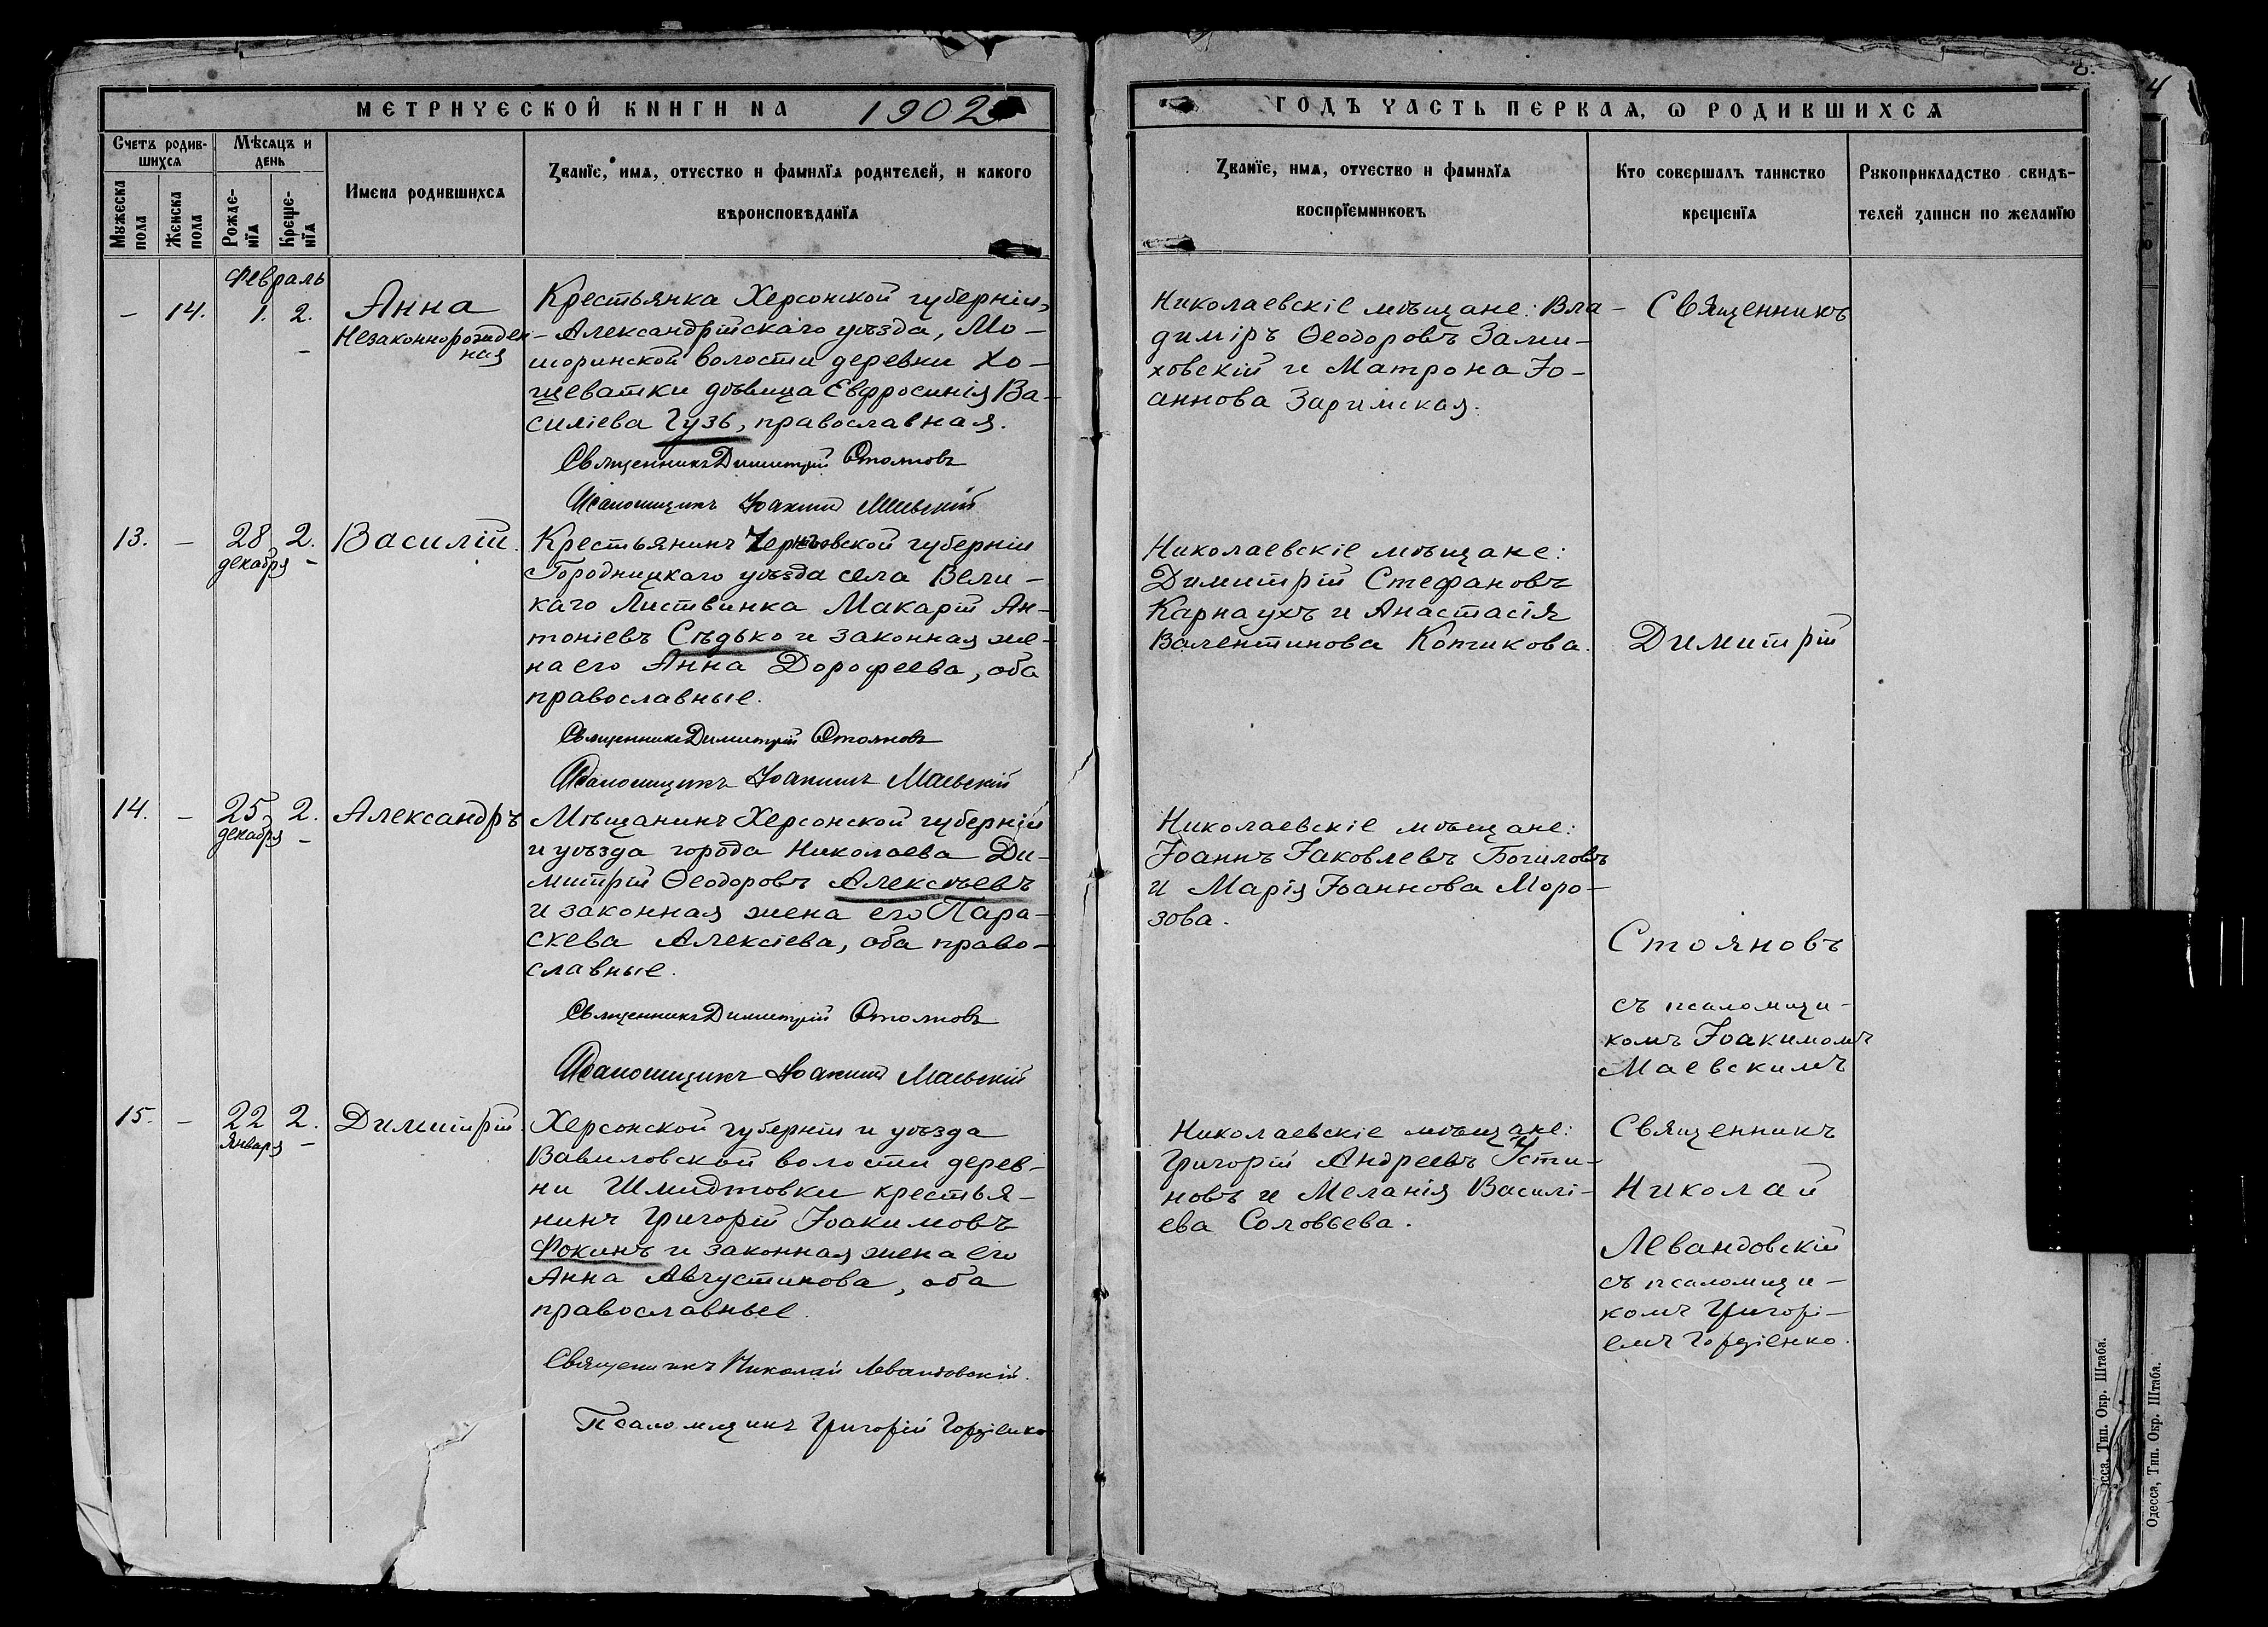 МЕТРИЧЕСКОЙ КНИГИ НА 1902
ГОДЪ ЧАСТЬ ПЕРВАЯ, Ѡ РОДИВШИХСЯ
Счетъ родив-
шихся
Мѣсяцъ и
день
Имена родившихся
Званїе, имя, отчество и фамилїя родителей, и какого
вѣроисповѣданїя
Мужеска
пола
Женска
пола
Рожде-
нїя
Креще-
нїя
Званїе, имя, отчество и фамилїя
воспрїемниковъ
Кто совершалъ таинство
крещенїя
Рукоприкладство свидѣ-
телей записи по желанїю
Февраль
– 14. 1. 2. Анна
Незаконнорожден-
ная
Крестьянка Херсонской губерніи,
Александрійскаго уѣзда, Мо-
шоринской волости деревни Хо-
щеватки дѣвица Евфросинія Ва-
силіева Гузь, православная.
Священникъ Димитрій Стояновъ
Псаломщикъ Іоакимъ Маевскій
Николаевскіе мѣщане: Вла-
диміръ Ѳеодоровъ Зами-
ховскій и Матрона Іо-
аннова Заримская.
Священникъ
13. – 28 2. Василій.
декабря
Крестьянинъ Черниговской губерніи
Городницкаго уѣзда села Вели-
каго Листвинка Макарій Ан-
тоніевъ Сѣдько и законная же-
на его Анна Дорофеева, оба
православные.
Священникъ Димитрій Стояновъ
Псаломщикъ Іоакимъ Маевскій
Николаевскіе мѣщане:
Димитрій Стефановъ
Карнаухъ и Анастасія
Валентинова Котикова.
Димитрій
14. – 25 2. Александръ
декабря
Мѣщанинъ Херсонской губерніи
и уѣзда города Николаева Ди-
митрій Ѳеодоровъ Алексѣевъ
и законная жена его Пара-
скева Алексіева, оба право-
славные.
Священникъ Димитрій Стояновъ
Псаломщикъ Іоакимъ Маевскій
Николаевскіе мѣщане:
Іоаннъ Іаковлевъ Богиловъ
и Марія Іоаннова Моро-
зова.
Стояновъ
съ псаломщи-
комъ Іоакимомъ
Маевскимъ
15. – 22 2. Димитрій.
января
Херсонской губерніи и уѣзда
Вавиловской волости дерев-
ни Шмидтовки крестья-
нинъ Григорій Іоакимовъ
Фокинъ и законная жена его
Анна Августинова, оба
православные.
Священникъ Николай Левандовскій.
Псаломщикъ Григорій Гордіенко
Николаевскіе мѣщане:
Григорій Андреевъ Усти-
новъ и Меланія Василі-
ева Соловьева.
Священникъ
Николай
Левандовскій
съ псаломщи-
комъ Григорі-
емъ Гордіенко.
Тип. Окр. Штаба.
Одесса, Тип. Окр. Штаба.